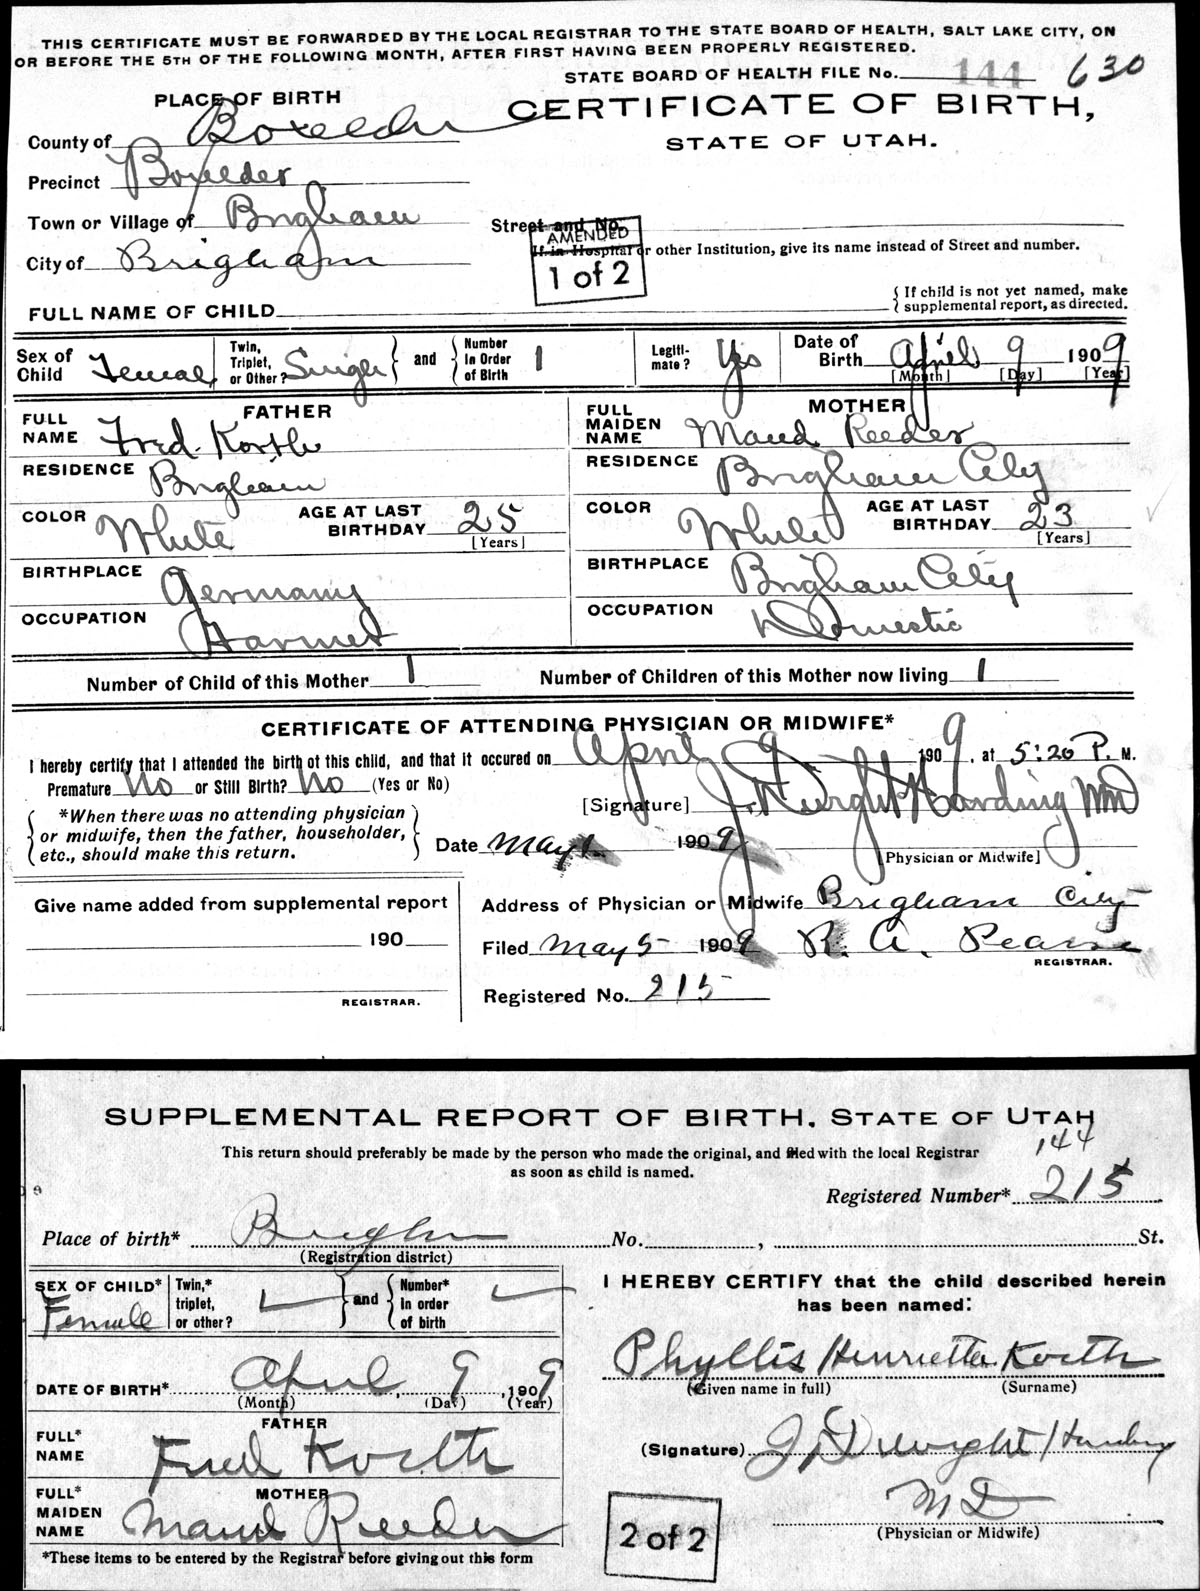 THIS CERTIFICATE MUST BE FORWARDED BY THE LOCAL REGISTRAR TO THE STATE BOARD OF HEALTH, SALT LAKE CITY, ON
OR BEFORE THE 5TH OF THE FOLLOWING MONTH, AFTER FIRST HAVING BEEN PROPERLY REGISTERED.
STATE BOARD OF HEALTH FILE No. 144 630
PLACE OF BIRTH
CERTIFICATE OF BIRTH,
STATE OF UTAH.
County of Boxelder
Precinct Boxelder
Town or Village of Brigham
Street and No.
City of Brigham
If in Hospital or other Institution, give its name instead of Street and number.
AMENDED
1 of 2
FULL NAME OF CHILD
{ If child is not yet named, make
supplemental report, as directed.
Sex of Child Female
Twin, Triplet, or Other? Single } and { Number In Order of Birth 1
Legiti-mate? Yes
Date of Birth April 9 1909
[Month] [Day] [Year]
FATHER
FULL NAME Fred Korth
RESIDENCE Brigham
COLOR White AGE AT LAST BIRTHDAY 25
[Years]
BIRTHPLACE Germany
OCCUPATION Farmer
MOTHER
FULL MAIDEN NAME Maud Reeder
RESIDENCE Brigham City
COLOR White AGE AT LAST BIRTHDAY 23
[Years]
BIRTHPLACE Brigham City
OCCUPATION Domestic
Number of Child of this Mother 1 Number of Children of this Mother now living 1
CERTIFICATE OF ATTENDING PHYSICIAN OR MIDWIFE*
I hereby certify that I attended the birth of this child, and that it occured on April 9 1909, at 5:20 P. M.
Premature No or Still Birth? No (Yes or No)
[Signature] J. Dwight Harding MD
[Physician or Midwife]
{ *When there was no attending physician
or midwife, then the father, householder,
etc., should make this return. }
Date May 1 1909
Give name added from supplemental report
190
REGISTRAR.
Address of Physician or Midwife Brigham City
Filed May 5 1909 R. A. Pearse
REGISTRAR.
Registered No. 215
SUPPLEMENTAL REPORT OF BIRTH. STATE OF UTAH
144
This return should preferably be made by the person who made the original, and filed with the local Registrar
as soon as child is named.
Registered Number* 215
Place of birth* Brigham No. , St.
(Registration district)
SEX OF CHILD* Female
Twin,* triplet, or other? } and { Number* In order of birth
DATE OF BIRTH* April, 9, 1909
(Month) (Day) (Year)
FATHER
FULL* NAME Fred Korth
MOTHER
FULL* MAIDEN NAME Maud Reeder
*These items to be entered by the Registrar before giving out this form
I HEREBY CERTIFY that the child described herein
has been named:
Phyllis Henrietta Korth
(Given name in full) (Surname)
(Signature) J. Dwight Harding
MD
(Physician or Midwife)
2 of 2